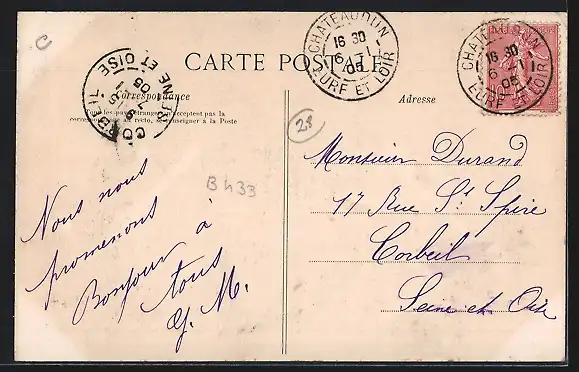 C
CARTE POSTALE
CHATEAUDUN
16 30
6 -1
05
EURE ET LOIR
CHATEAUDUN
16 30
6 -1
05
EURE ET LOIR
CORBEIL
05
SEINE ET OISE
Correspondance
Adresse
Tous les pays étrangers n'acceptent pas la
correspondance au recto, se renseigner à la Poste
28
B433
Nous nous
promenons
Bonjour à
tous
G. M.
Monsieur Durand
17 Rue St Spire
Corbeil
Seine et Oise